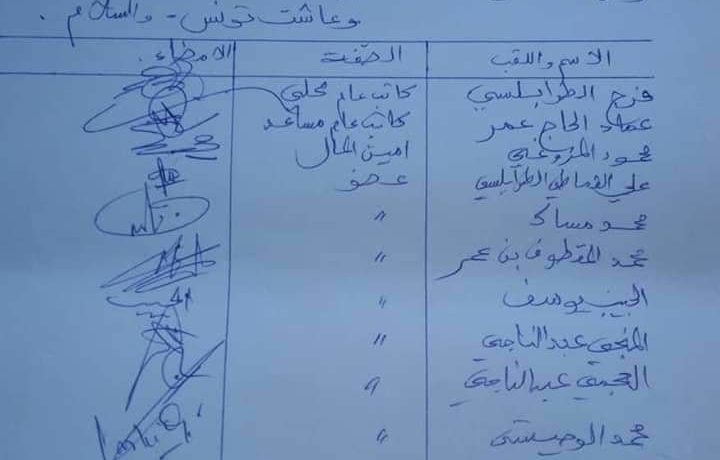 وعاشت تونس - والسلام.
الاسم واللقب الصفة الامضاء.
فرج الطرابلسي كاتب عام محلي
عماد الحاج عمر كاتب عام مساعد
محمود المزوغي امين المال
علي القماطي الطرابلسي عضو
محمد مساكد "
محمد المقطوف بن عمر "
الحبيب يوسف " الحبيب
المنجي عبد الناجي "
العجمي عبد الناجي "
محمد الوحيشي "